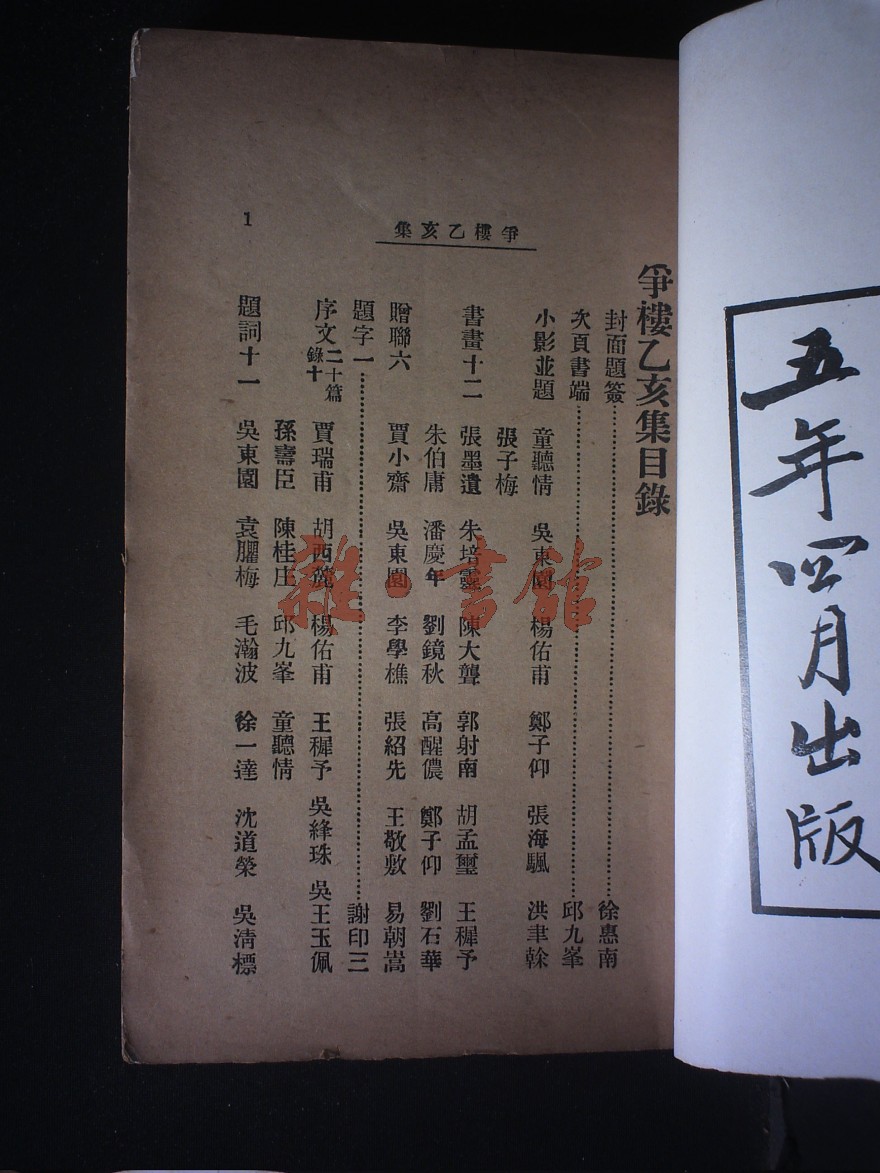 五年四月出版
爭樓乙亥集目錄
封面題簽……徐惠南
次頁書端……邱九峯
小影並題 童聽情 吳東園 楊佑甫 鄭子仰 張海颿 洪聿榦
張子梅
書畫十二 張墨遺 朱培靈 陳大聾 郭射南 胡孟璽 王穉予
朱伯庸 潘慶年 劉鏡秋 高醒儂 鄭子仰 劉石華
贈聯六 賈小齋 吳東園 李學樵 張紹先 王敬敷 易朝嵩
題字一……謝印三
序文二十篇錄十 賈瑞甫 胡西麓 楊佑甫 王穉予 吳絳珠 吳王玉佩
孫壽臣 陳桂庄 邱九峯 童聽情
題詞十一 吳東園 袁臞梅 毛瀚波 徐一達 沈道榮 吳淸標
爭樓乙亥集
1
雜·書館